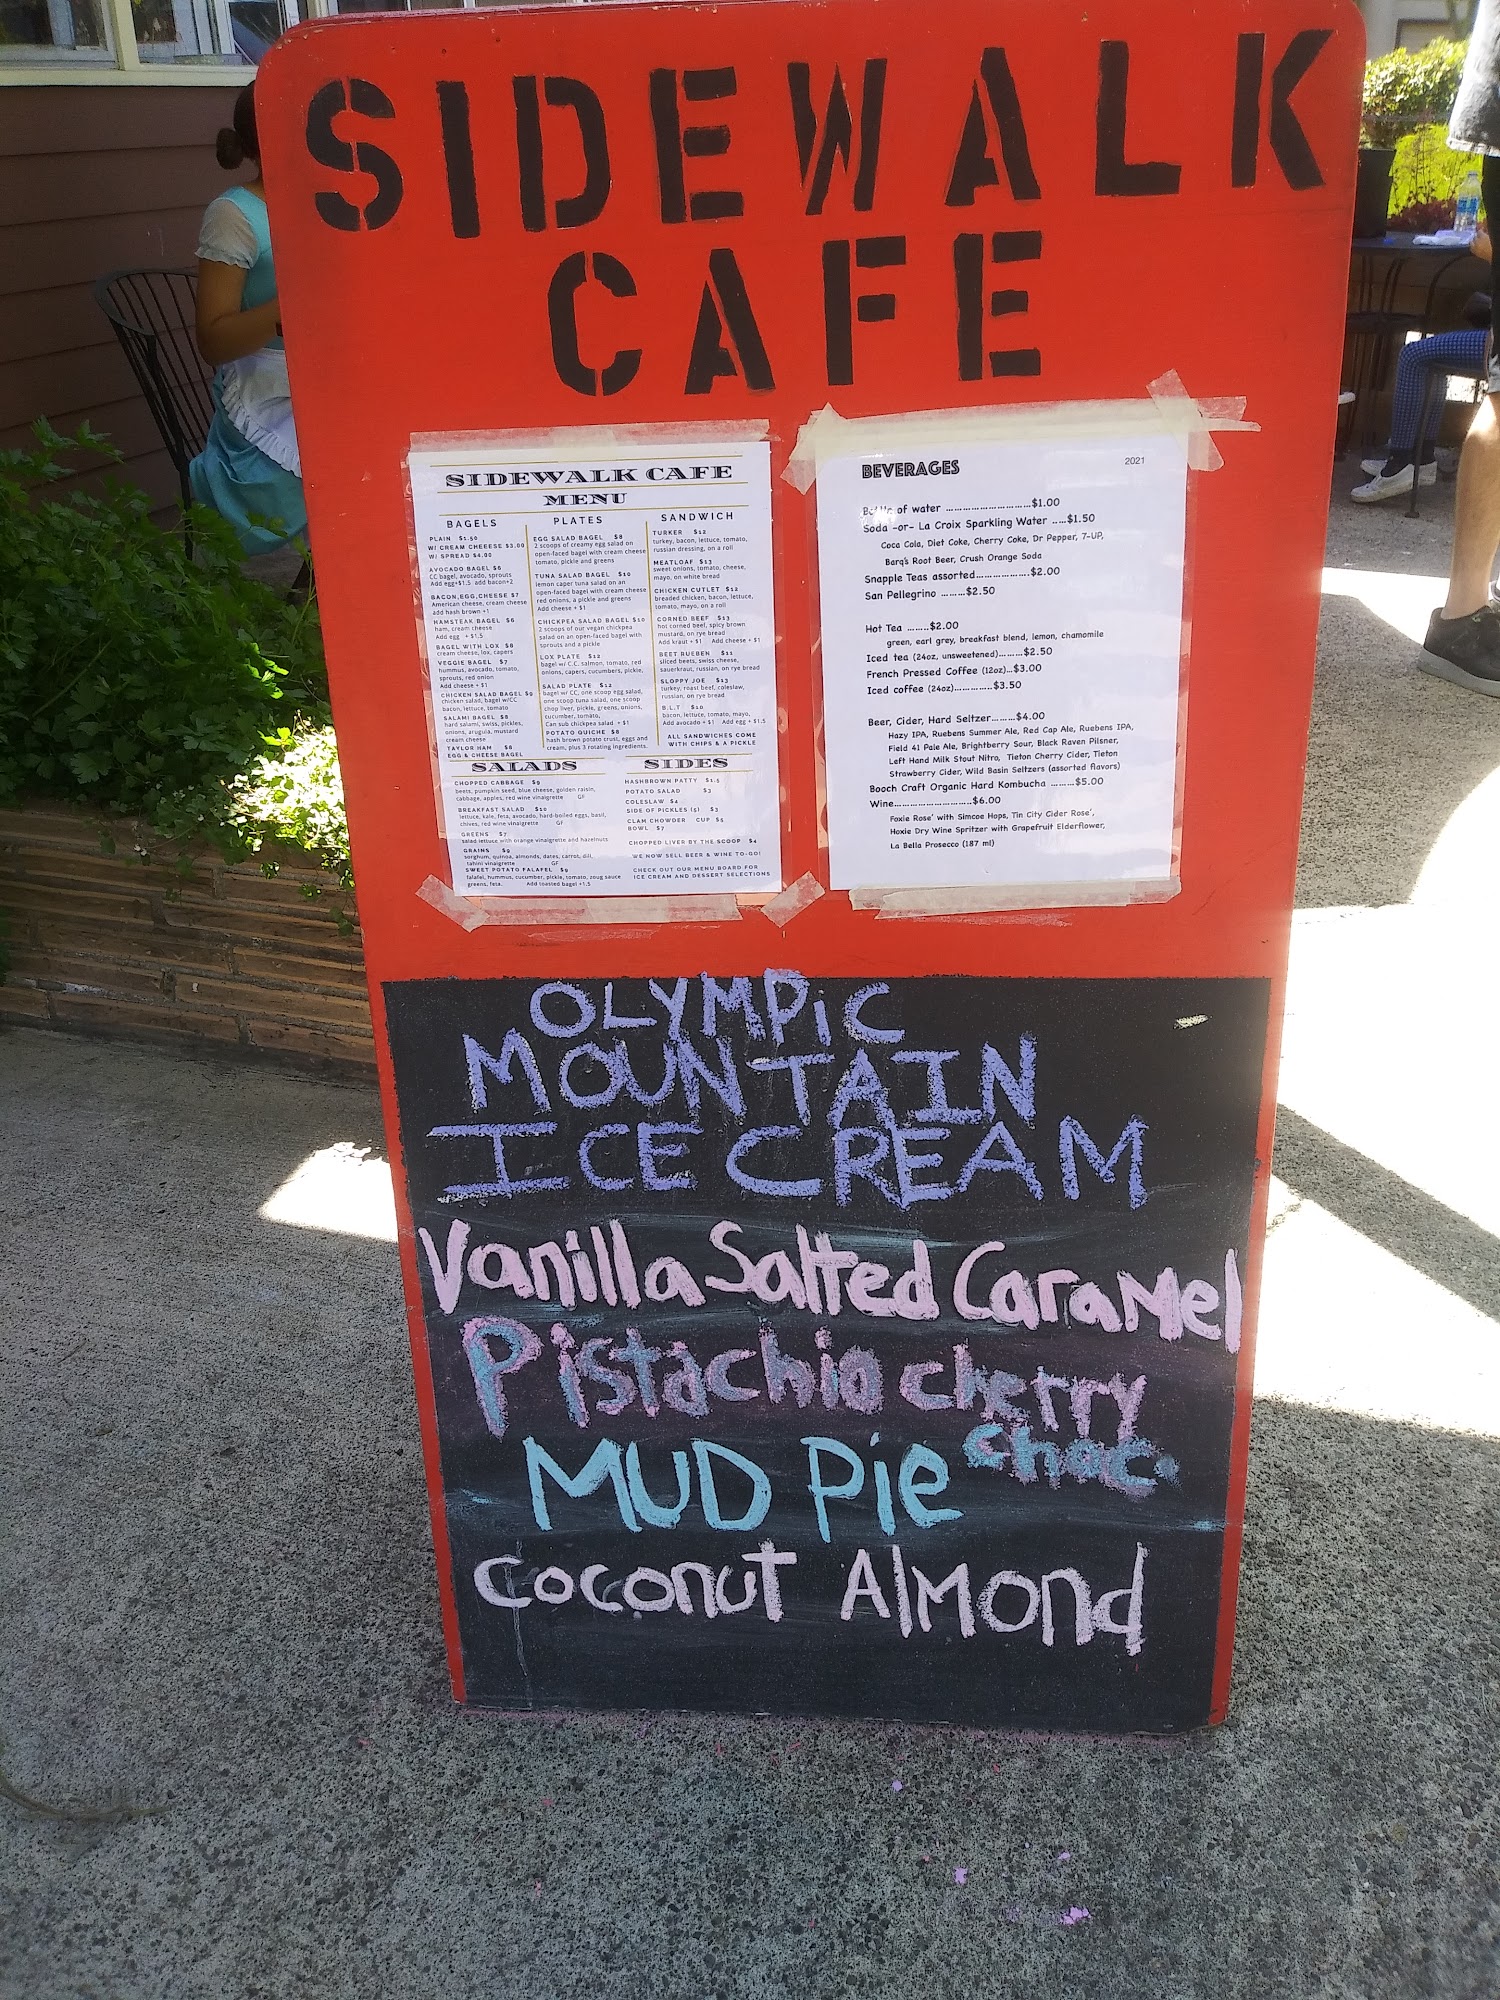 SIDEWALK
CAFE
SIDEWALK CAFE
MENU
BAGELS
PLAIN $1.50
W/ CREAM CHEEESE $3.00
W/ SPREAD $4.00
AVOCADO BAGEL $6
CC bagel, avocado, sprouts
Add egg+$1.5 add bacon+2
BACON,EGG,CHEESE $7
American cheese, cream cheese
add hash brown +1
HAMSTEAK BAGEL $6
ham, cream cheese
Add egg + $1.5
BAGEL WITH LOX $8
cream cheese, lox, capers
VEGGIE BAGEL $7
hummus, avocado, tomato,
sprouts, red onion
Add cheese + $1
CHICKEN SALAD BAGEL $9
chicken salad, bagel w/CC
bacon, lettuce, tomato
SALAMI BAGEL $8
hard salami, swiss, pickles,
onions, arugula, mustard
cream cheese
TAYLOR HAM $8
EGG & CHEESE BAGEL
PLATES
EGG SALAD BAGEL $8
2 scoops of creamy egg salad on
open-faced bagel with cream cheese
tomato, pickle and greens
TUNA SALAD BAGEL $10
lemon caper tuna salad on an
open-faced bagel with cream cheese
red onions, a pickle and greens
Add cheese + $1
CHICKPEA SALAD BAGEL $10
2 scoops of our vegan chickpea
salad on an open-faced bagel with
sprouts and a pickle
LOX PLATE $12
bagel w/ C.C. salmon, tomato, red
onions, capers, cucumbers, pickle,
SALAD PLATE $12
bagel w/ CC, one scoop egg salad,
one scoop tuna salad, one scoop
chop liver, pickle, greens, onions,
cucumber, tomato,
Can sub chickpea salad + $1
POTATO QUICHE $8
hash brown potato trust, eggs and
cream, plus 3 rotating ingredients.
SANDWICH
TURKER $12
turkey, bacon, lettuce, tomato,
russian dressing, on a roll
MEATLOAF $13
sweet onions, tomato, cheese,
mayo, on white bread
CHICKEN CUTLET $12
breaded chicken, bacon, lettuce,
tomato, mayo, on a roll
CORNED BEEF $13
hot corned beef, spicy brown
mustard, on rye bread
Add kraut + $1 Add cheese + $1
BEET RUEBEN $11
sliced beets, swiss cheese,
sauerkraut, russian, on rye bread
SLOPPY JOE $13
turkey, roast beef, coleslaw,
russian, on rye bread
B.L.T $10
bacon, lettuce, tomato, mayo,
Add avocado + $1 Add egg + $1.5
ALL SANDWICHES COME
WITH CHIPS & A PICKLE
SALADS
CHOPPED CABBAGE $9
beets, pumpkin seed, blue cheese, golden raisin,
cabbage, apples, red wine vinaigrette GF
BREAKFAST SALAD $10
lettuce, kale, feta, avocado, hard-boiled eggs, basil,
chives, red wine vinaigrette GF
GREENS $7
salad lettuce with orange vinaigrette and hazelnuts
GRAINS $9
sorghum, quinoa, almonds, dates, carrot, dill,
tahini vinaigrette GF
SWEET POTATO FALAFEL $9
falafel, hummus, cucumber, pickle, tomato, zoug sauce
greens, feta. Add toasted bagel +1.5
SIDES
HASHBROWN PATTY $1.5
POTATO SALAD $3
COLESLAW $4
SIDE OF PICKLES (5) $3
CLAM CHOWDER CUP $5
BOWL $7
CHOPPED LIVER BY THE SCOOP $4
WE NOW SELL BEER & WINE TO-GO!
CHECK OUT OUR MENU BOARD FOR
ICE CREAM AND DESSERT SELECTIONS
BEVERAGES 2021
Bottle of water ..............................$1.00
Soda -or- La Croix Sparkling Water .....$1.50
Coca Cola, Diet Coke, Cherry Coke, Dr Pepper, 7-UP,
Barq's Root Beer, Crush Orange Soda
Snapple Teas assorted...................$2.00
San Pellegrino .........$2.50
Hot Tea ........$2.00
green, earl grey, breakfast blend, lemon, chamomile
Iced tea (24oz, unsweetened).........$2.50
French Pressed Coffee (12oz)...$3.00
Iced coffee (24oz)..............$3.50
Beer, Cider, Hard Seltzer.........$4.00
Hazy IPA, Ruebens Summer Ale, Red Cap Ale, Ruebens IPA,
Field 41 Pale Ale, Brightberry Sour, Black Raven Pilsner,
Left Hand Milk Stout Nitro, Tieton Cherry Cider, Tieton
Strawberry Cider, Wild Basin Seltzers (assorted flavors)
Booch Craft Organic Hard Kombucha .........$5.00
Wine............................$6.00
Foxie Rose' with Simcoe Hops, Tin City Cider Rose',
Hoxie Dry Wine Spritzer with Grapefruit Elderflower,
La Bella Prosecco (187 ml)
OLYMPiC
MOUNTAIN
ICE CREAM
Vanilla Salted CaraMel
Pistachio cherry
choc.
MUD Pie
Coconut Almond